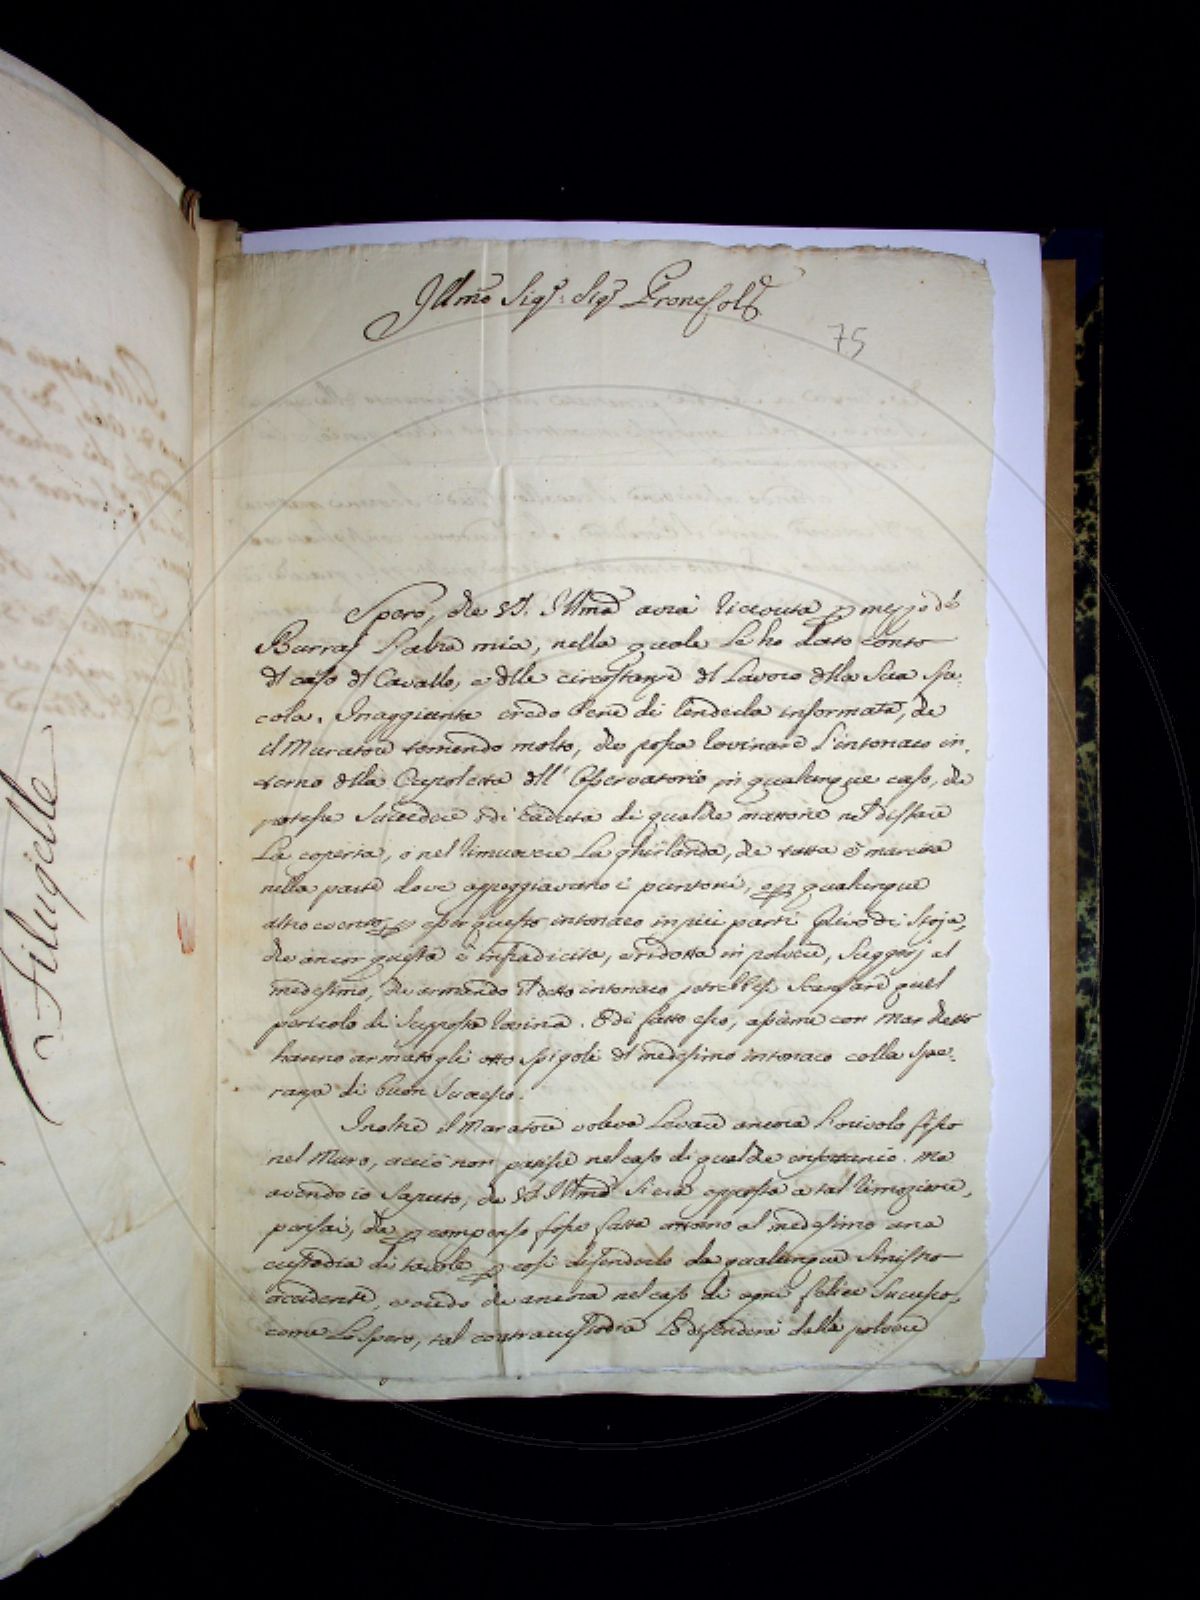 Illmo Sigr: Sigr Prone Col
75
Spero, che V.S. Illma avrà ricevuta p mezzo de
Burraj l'altra mia, nella quale Le ho dato conto
del caso del Cavallo, e delle circostanze del Lavoro della Sua Spe-
cola. In aggiunta credo bene di renderla informata, che
il Muratore temendo molto, che possa rovinare l'intonaco in-
terno della Cupoletta dell' Osservatorio in qualunque caso, che
potesse succedere o di caduta di qualche mattone nel disfare
La coperta, o nel rimuovere La ghirlanda, che tutta è marcita
nella parte dove appoggiavano i puntoni, o p qualunque
altro evento, p esser questo intonaco in più parti privo di Stoja,
che ancor questa è infradicita, e ridotta in polvere, Suggerj al
medesimo, che armando il detto intonaco potrebbesi Scansare quel
pericolo di Supposta rovina. E di fatto esso, assieme con
hanno armato gli otto Spigoli del medesimo intonaco colla Spe-
ranza di buon Successo.
Inoltre il Muratore voleva Levare ancora l'orivolo fisso
nel Muro, acciò non patisse nel caso di qualche infortunio. Ma
avendo io Saputo, che V.S. Illma Si era opposta a tal rimozione,
pensai, che p compenso fosse fatta attorno al medesimo una
custodia di tavole p così difenderlo da qualunque Sinistro
accidente, e credo che ancora nel caso di ogni felice Successo,
come Lo Spero, tal contracustodia Lo difenderà dalla polvere
Filugelle